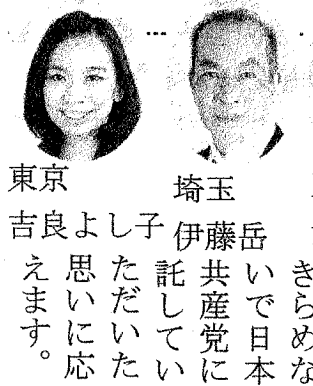 東京
吉良よし子
埼玉
伊藤岳
きらめな
いで日本
共産党に
託してい
ただいた
思いに応
えます。